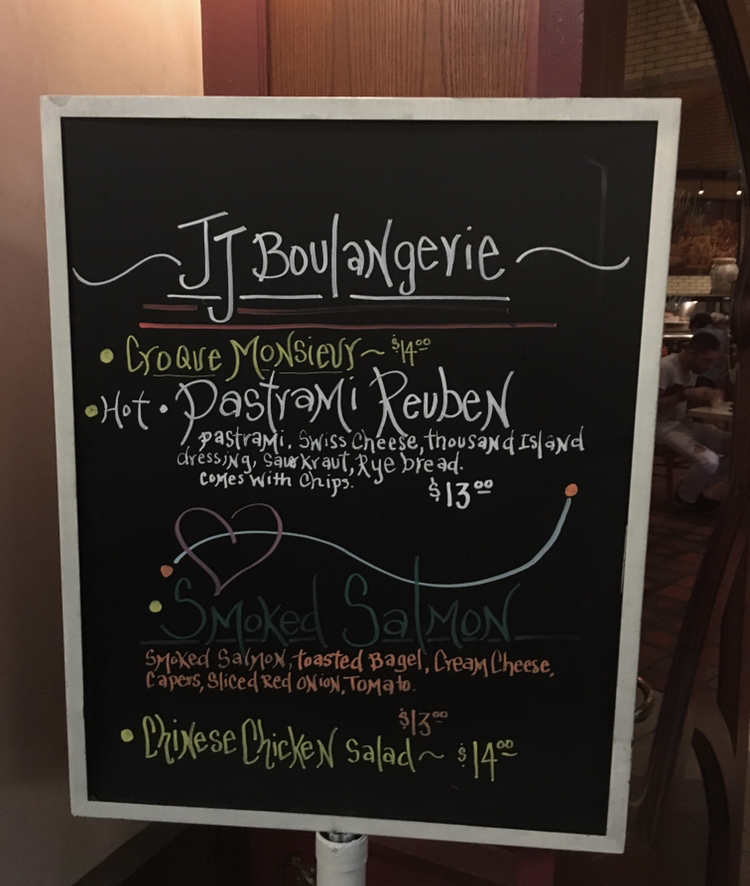 JJ Boulangerie
• Croque Monsieur ~ $14.00
• Hot • Pastrami Reuben
pastrami, Swiss Cheese, thousand Island
dressing, Saurkraut, Rye bread.
comes with Chips. $13.00
• Smoked Salmon
Smoked Salmon, toasted Bagel, Cream Cheese,
Capers, Sliced Red Onion, Tomato.
$13.00
• Chinese Chicken Salad ~ $14.00